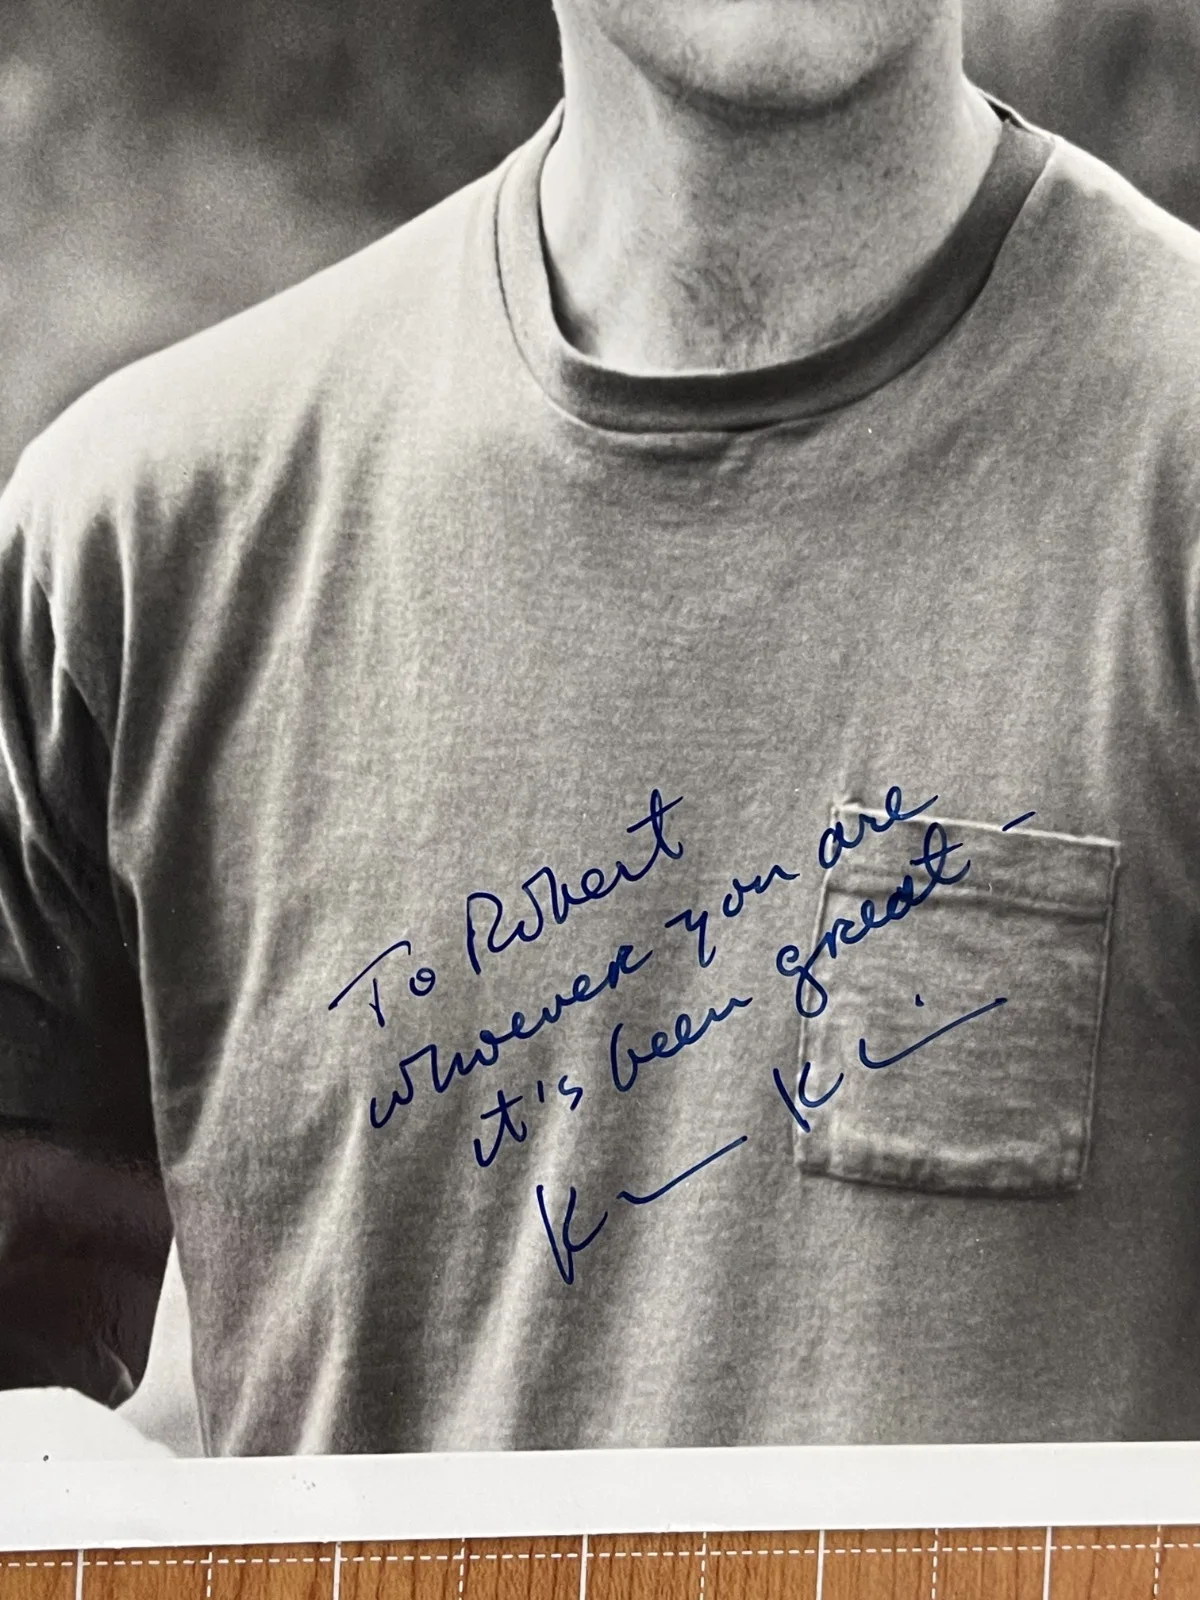 To Robert
whoever you are
it's been great -
K K